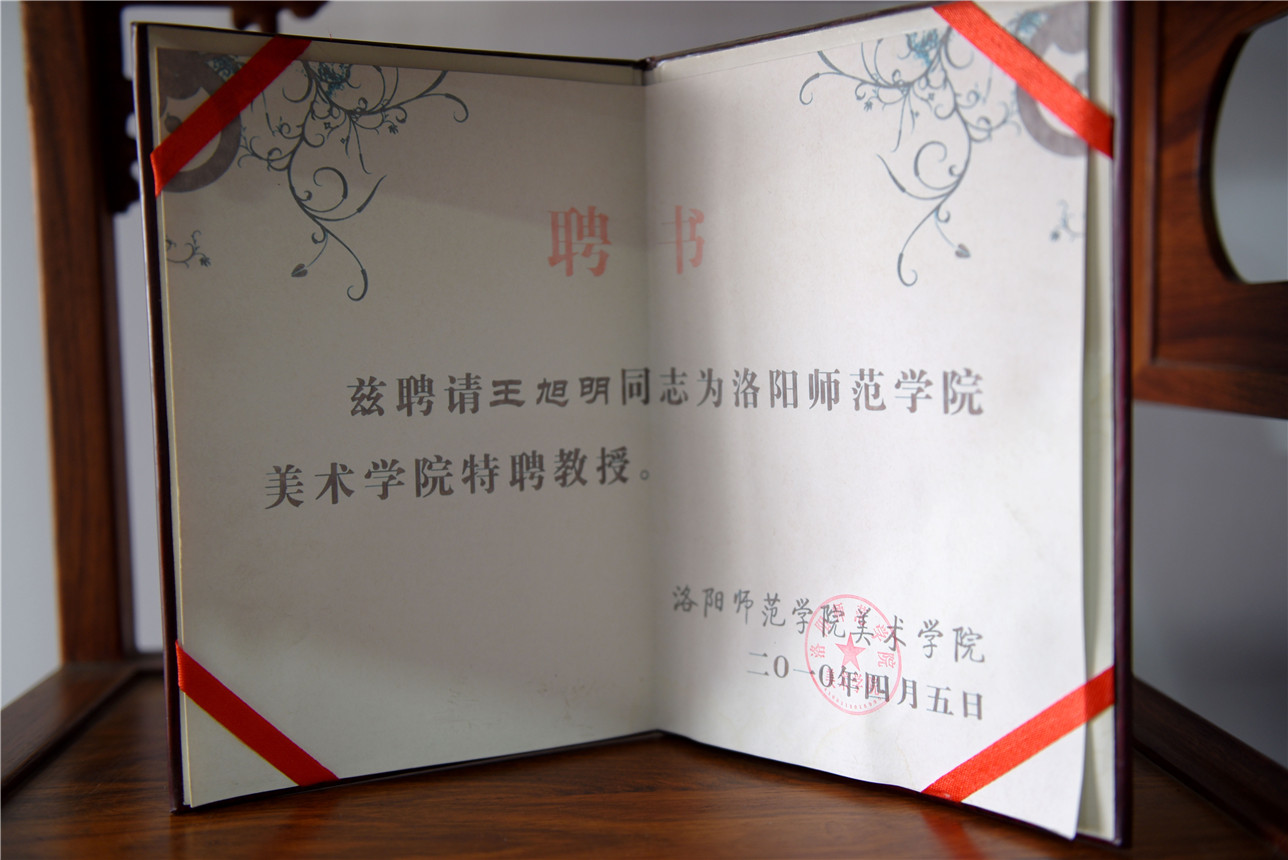 聘书
兹聘请王旭明同志为洛阳师范学院
美术学院特聘教授。
洛阳师范学院美术学院
二〇一〇年四月五日